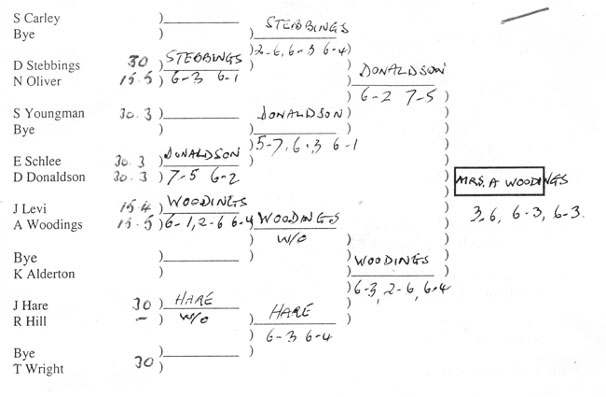 S Carley )
Bye ) STEBBINGS
2-6, 6-3 6-4)
D Stebbings 30 ) STEBBINGS
N Oliver 15.5 ) 6-3 6-1
DONALDSON
) 6-2 7-5 )
S Youngman 30.3 )
Bye ) DONALDSON)
)5-7, 6-3 6-1
E Schlee 30.3 ) DONALDSON
D Donaldson 30.3 ) 7-5 6-2
MRS. A WOODINGS
3.6, 6-3, 6-3.
J Levi 15.4 ) WOODINGS
A Woodings 15.5 ) 6-1, 2-6 6-4 WOODINGS
W/O
Bye )
K Alderton )
WOODINGS
)6-3, 2-6, 6-4
J Hare 30 ) HARE
R Hill - ) W/O
HARE
) 6-3 6-4 )
Bye )
T Wright 30 )